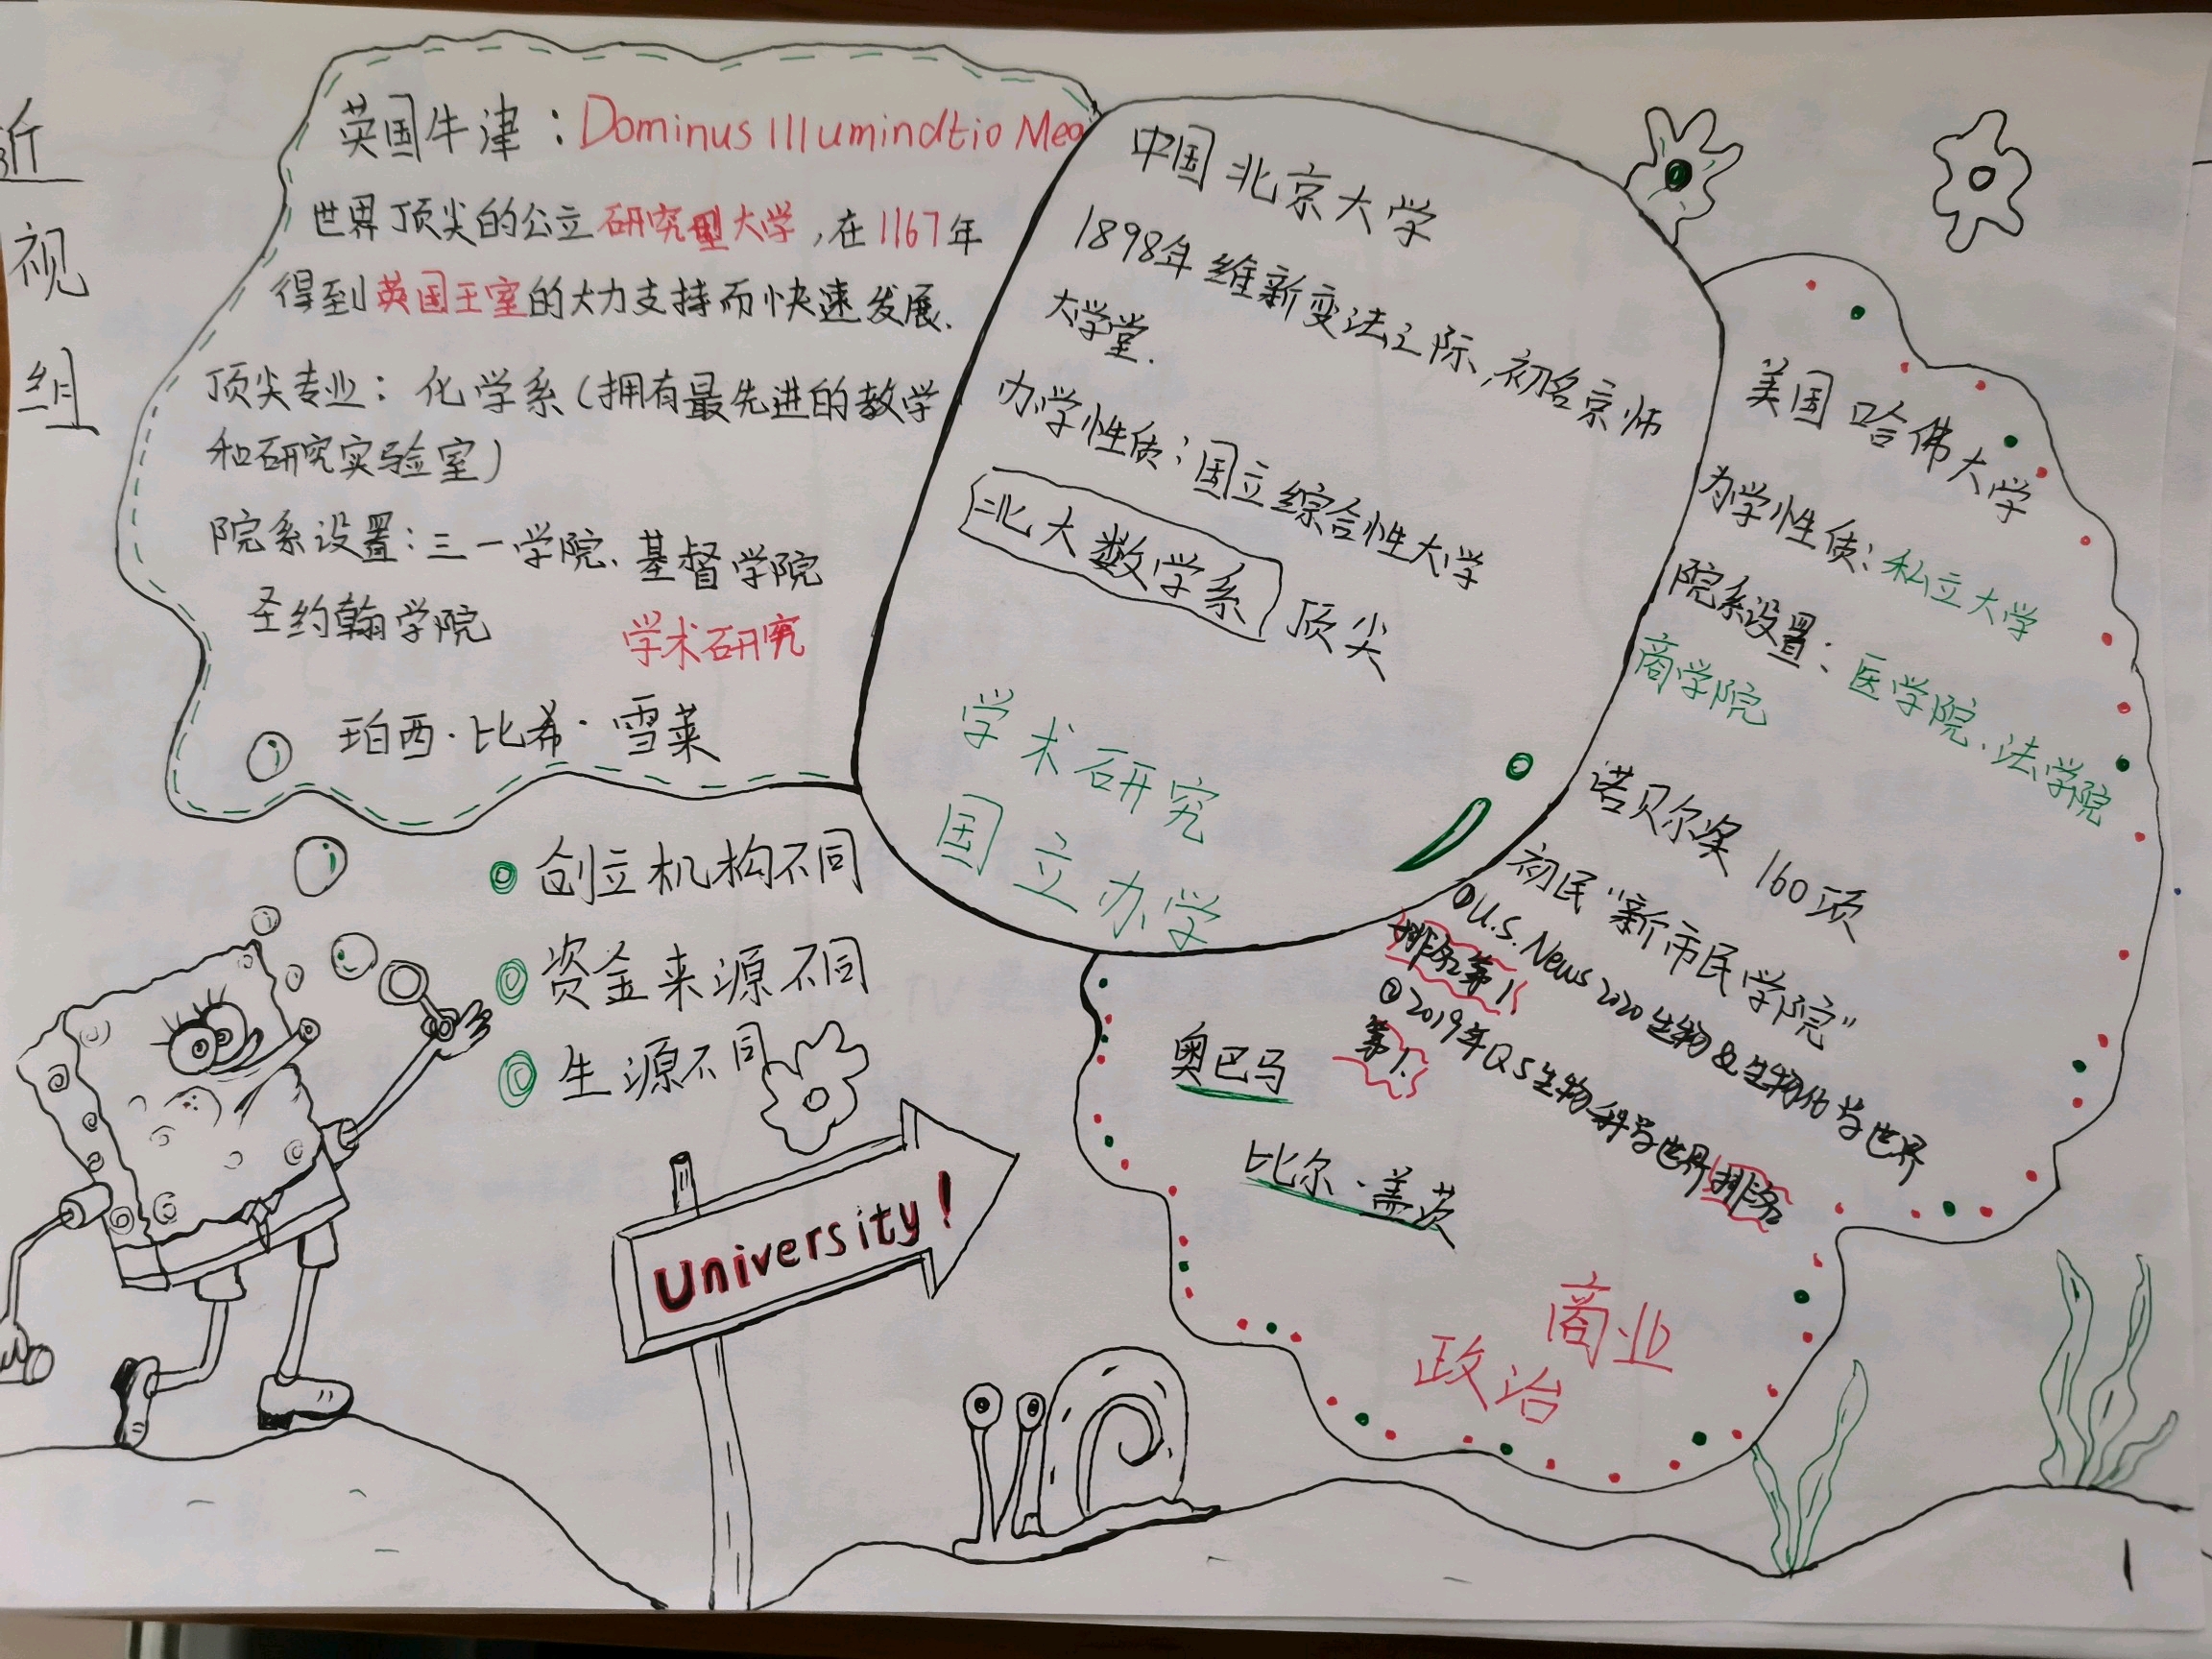 视
组
英国牛津：Dominus Illumindtio Mea
世界顶尖的公立研究型大学，在1167年
得到英国王室的大力支持而快速发展.
顶尖专业：化学系(拥有最先进的教学
和研究实验室)
院系设置：三一学院、基督学院
圣约翰学院
学术研究
珀西·比希·雪莱
中国北京大学
1898年维新变法之际,初名京师
大学堂.
办学性质：国立综合性大学
北大数学系 顶尖
学术研究
国立办学
美国哈佛大学
办学性质：私立大学
院系设置：医学院、法学院
商学院
诺贝尔奖 160项
初民“新市民学院”
①U.S.News 2020生物&生物化学世界
排名第1
②2019年QS生物科学世界排名
第1.
奥巴马
比尔·盖茨
商业
政治
创立机构不同
资金来源不同
生源不同
University!
1